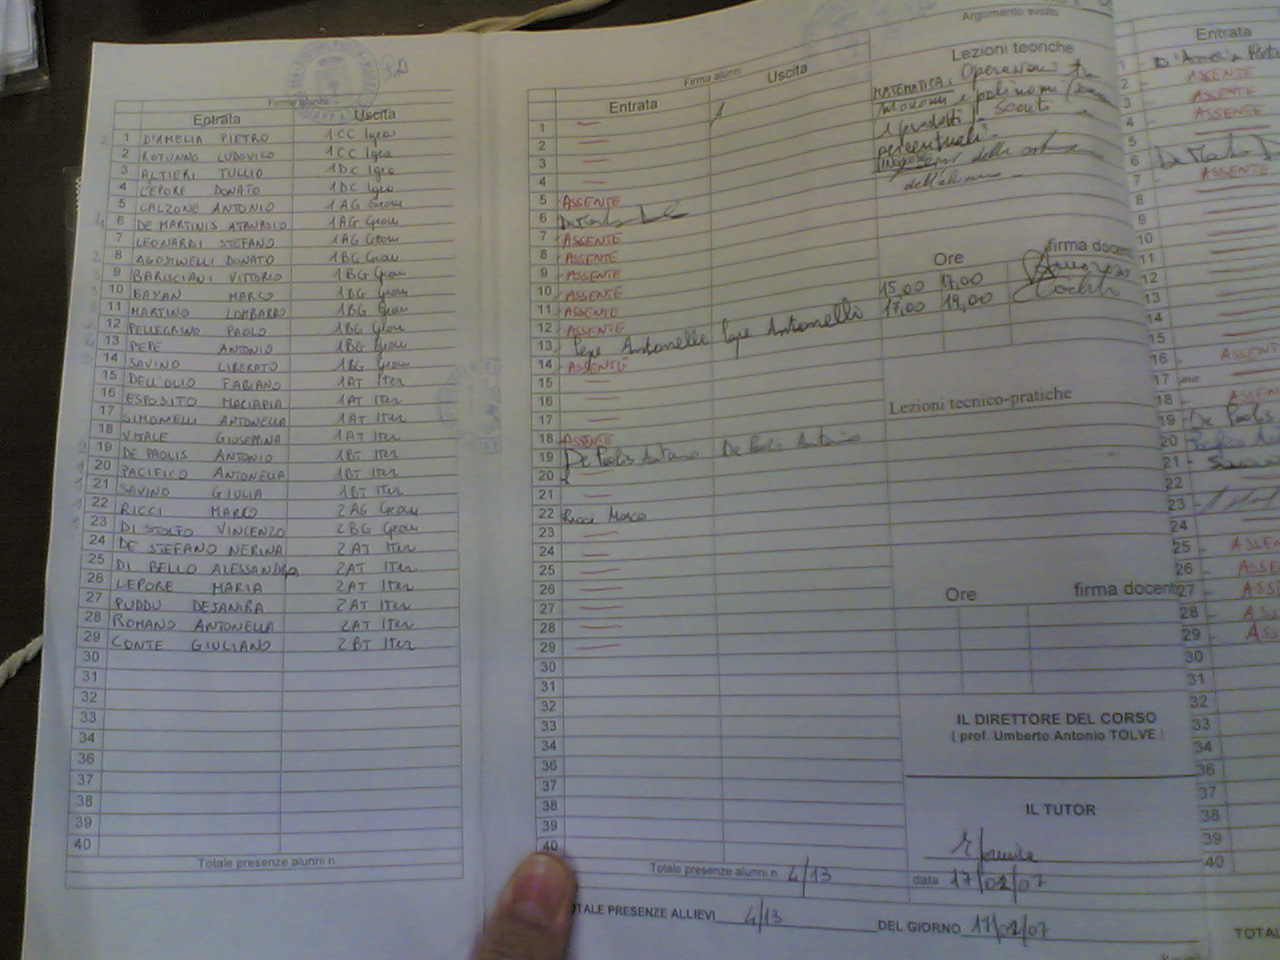 Firma alunni
Entrata Uscita
1 D'AMELIA PIETRO 1CC Igea
2 ROTUNNO LUDOVICO 1CC Igea
3 ALTIERI TULLIO 1DC Igea
4 LEPORE DONATO 1DC Igea
5 CALZONE ANTONIO 1AG Geom
6 DE MARTINIS ATANASIO 1AG Geom
7 LEONARDI STEFANO 1AG Geom
8 AGOSTINELLI DONATO 1BG Geom
9 BARUSCIANI VITTORIO 1BG Geom
10 BAYAN MARCO 1BG Geom
11 MARTINO LOMBARDO 1BG Geom
12 PELLEGRINO PAOLO 1BG Geom
13 PEPE ANTONIO 1BG Geom
14 SAVINO LIBERATO 1BG Geom
15 DELL'OLIO FABIANO 1AT Iter
16 ESPOSITO MACIAPIA 1AT Iter
17 SIMONELLI ANTONELLA 1AT Iter
18 VITALE GIUSEPPINA 1AT Iter
19 DE PAOLIS ANTONIO 1BT Iter
20 PACIFICO ANTONELLA 1BT Iter
21 SAVINO GIULIA 1BT Iter
22 RICCI MARCO 2AG Geom
23 DI STOLFO VINCENZO 2BG Geom
24 DE STEFANO NERINA 2AT Iter
25 DI BELLO ALESSANDRA 2AT Iter
26 LEPORE MARIA 2AT Iter
27 PUDDU DEJANIRA 2AT Iter
28 ROMANO ANTONELLA 2AT Iter
29 CONTE GIULIANO 2BT Iter
30
31
32
33
34
36
37
38
39
40
Totale presenze alunni n.
Firma alunni
Entrata Uscita
1
2
3
4
5 ASSENTE
6
7 ASSENTE
8 ASSENTE
9 ASSENTE
10 ASSENTE
11 ASSENTE
12 ASSENTE
13 Pepe Antonello Pepe Antonello
14 ASSENTE
15
16
17
18 ASSENTE
19 De Paolis Antonio De Paolis Antonio
20
21
22 Ricci Marco
23
24
25
26
27
28
29
30
31
32
33
34
36
37
38
39
40
Totale presenze alunni n. 4/13
TALE PRESENZE ALLIEVI 4/13 DEL GIORNO 17/02/07
Argomento svolto
Lezioni teoriche
MATEMATICA: Operazioni tra
monomi e polinomi
e prodotti - Sconti
percentuali -
Ore firma docen
15,00 17,00
17,00 19,00
Lezioni tecnico-pratiche
Ore firma docent
IL DIRETTORE DEL CORSO
( prof. Umberto Antonio TOLVE )
IL TUTOR
data 17/02/07
Entrata
1 D'Amelia Pietro
2 ASSENTE
3 ASSENTE
4 ASSENTE
5
6
7 ASSENTE
8
9
10
11
12
13
14
15
16 ASSENT
17
18 ASSEN
19 De Paolis
20 Pacifico
21
22
23
24
25 ASSEN
26 ASSE
27 ASS
28 ASSE
29 ASS
30
31
32
33
34
36
37
38
39
40
TOTAL